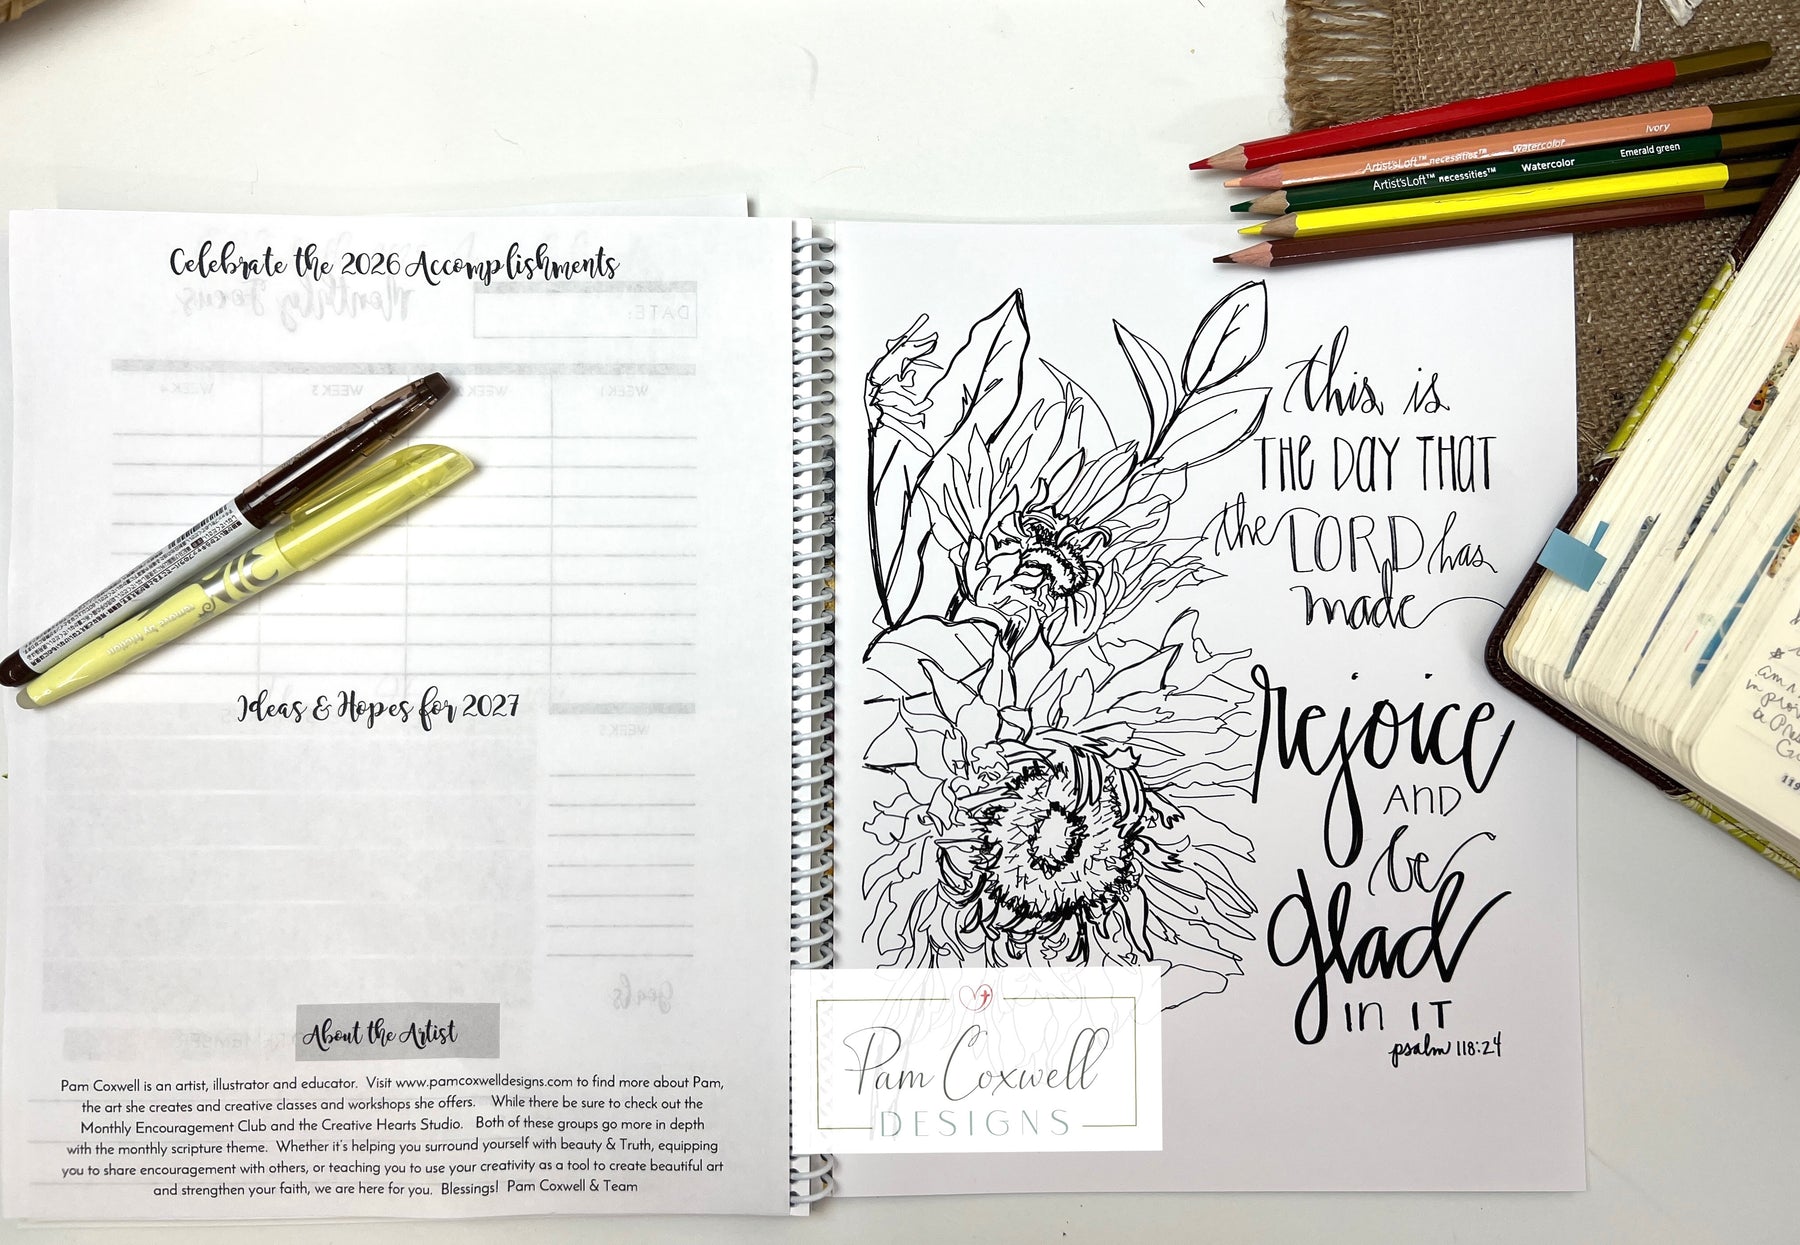 Celebrate the 2026 Accomplishments
Monthly Focus
DATE:
WEEK 1
WEEK 3
WEEK 4
Ideas & Hopes for 2027
WEEK 5
goals
About the Artist
Pam Coxwell is an artist, illustrator and educator. Visit www.pamcoxwelldesigns.com to find more about Pam,
the art she creates and creative classes and workshops she offers. While there be sure to check out the
Monthly Encouragement Club and the Creative Hearts Studio. Both of these groups go more in depth
with the monthly scripture theme. Whether it's helping you surround yourself with beauty & Truth, equipping
you to share encouragement with others, or teaching you to use your creativity as a tool to create beautiful art
and strengthen your faith, we are here for you. Blessings! Pam Coxwell & Team
this is
THE DAY THAT
the LORD has
made
rejoice
AND
be
glad
IN IT
psalm 118:24
Pam Coxwell
DESIGNS
Artist'sLoft™ necessities™ Watercolor Ivory
Artist'sLoft™ necessities™ Watercolor Emerald green